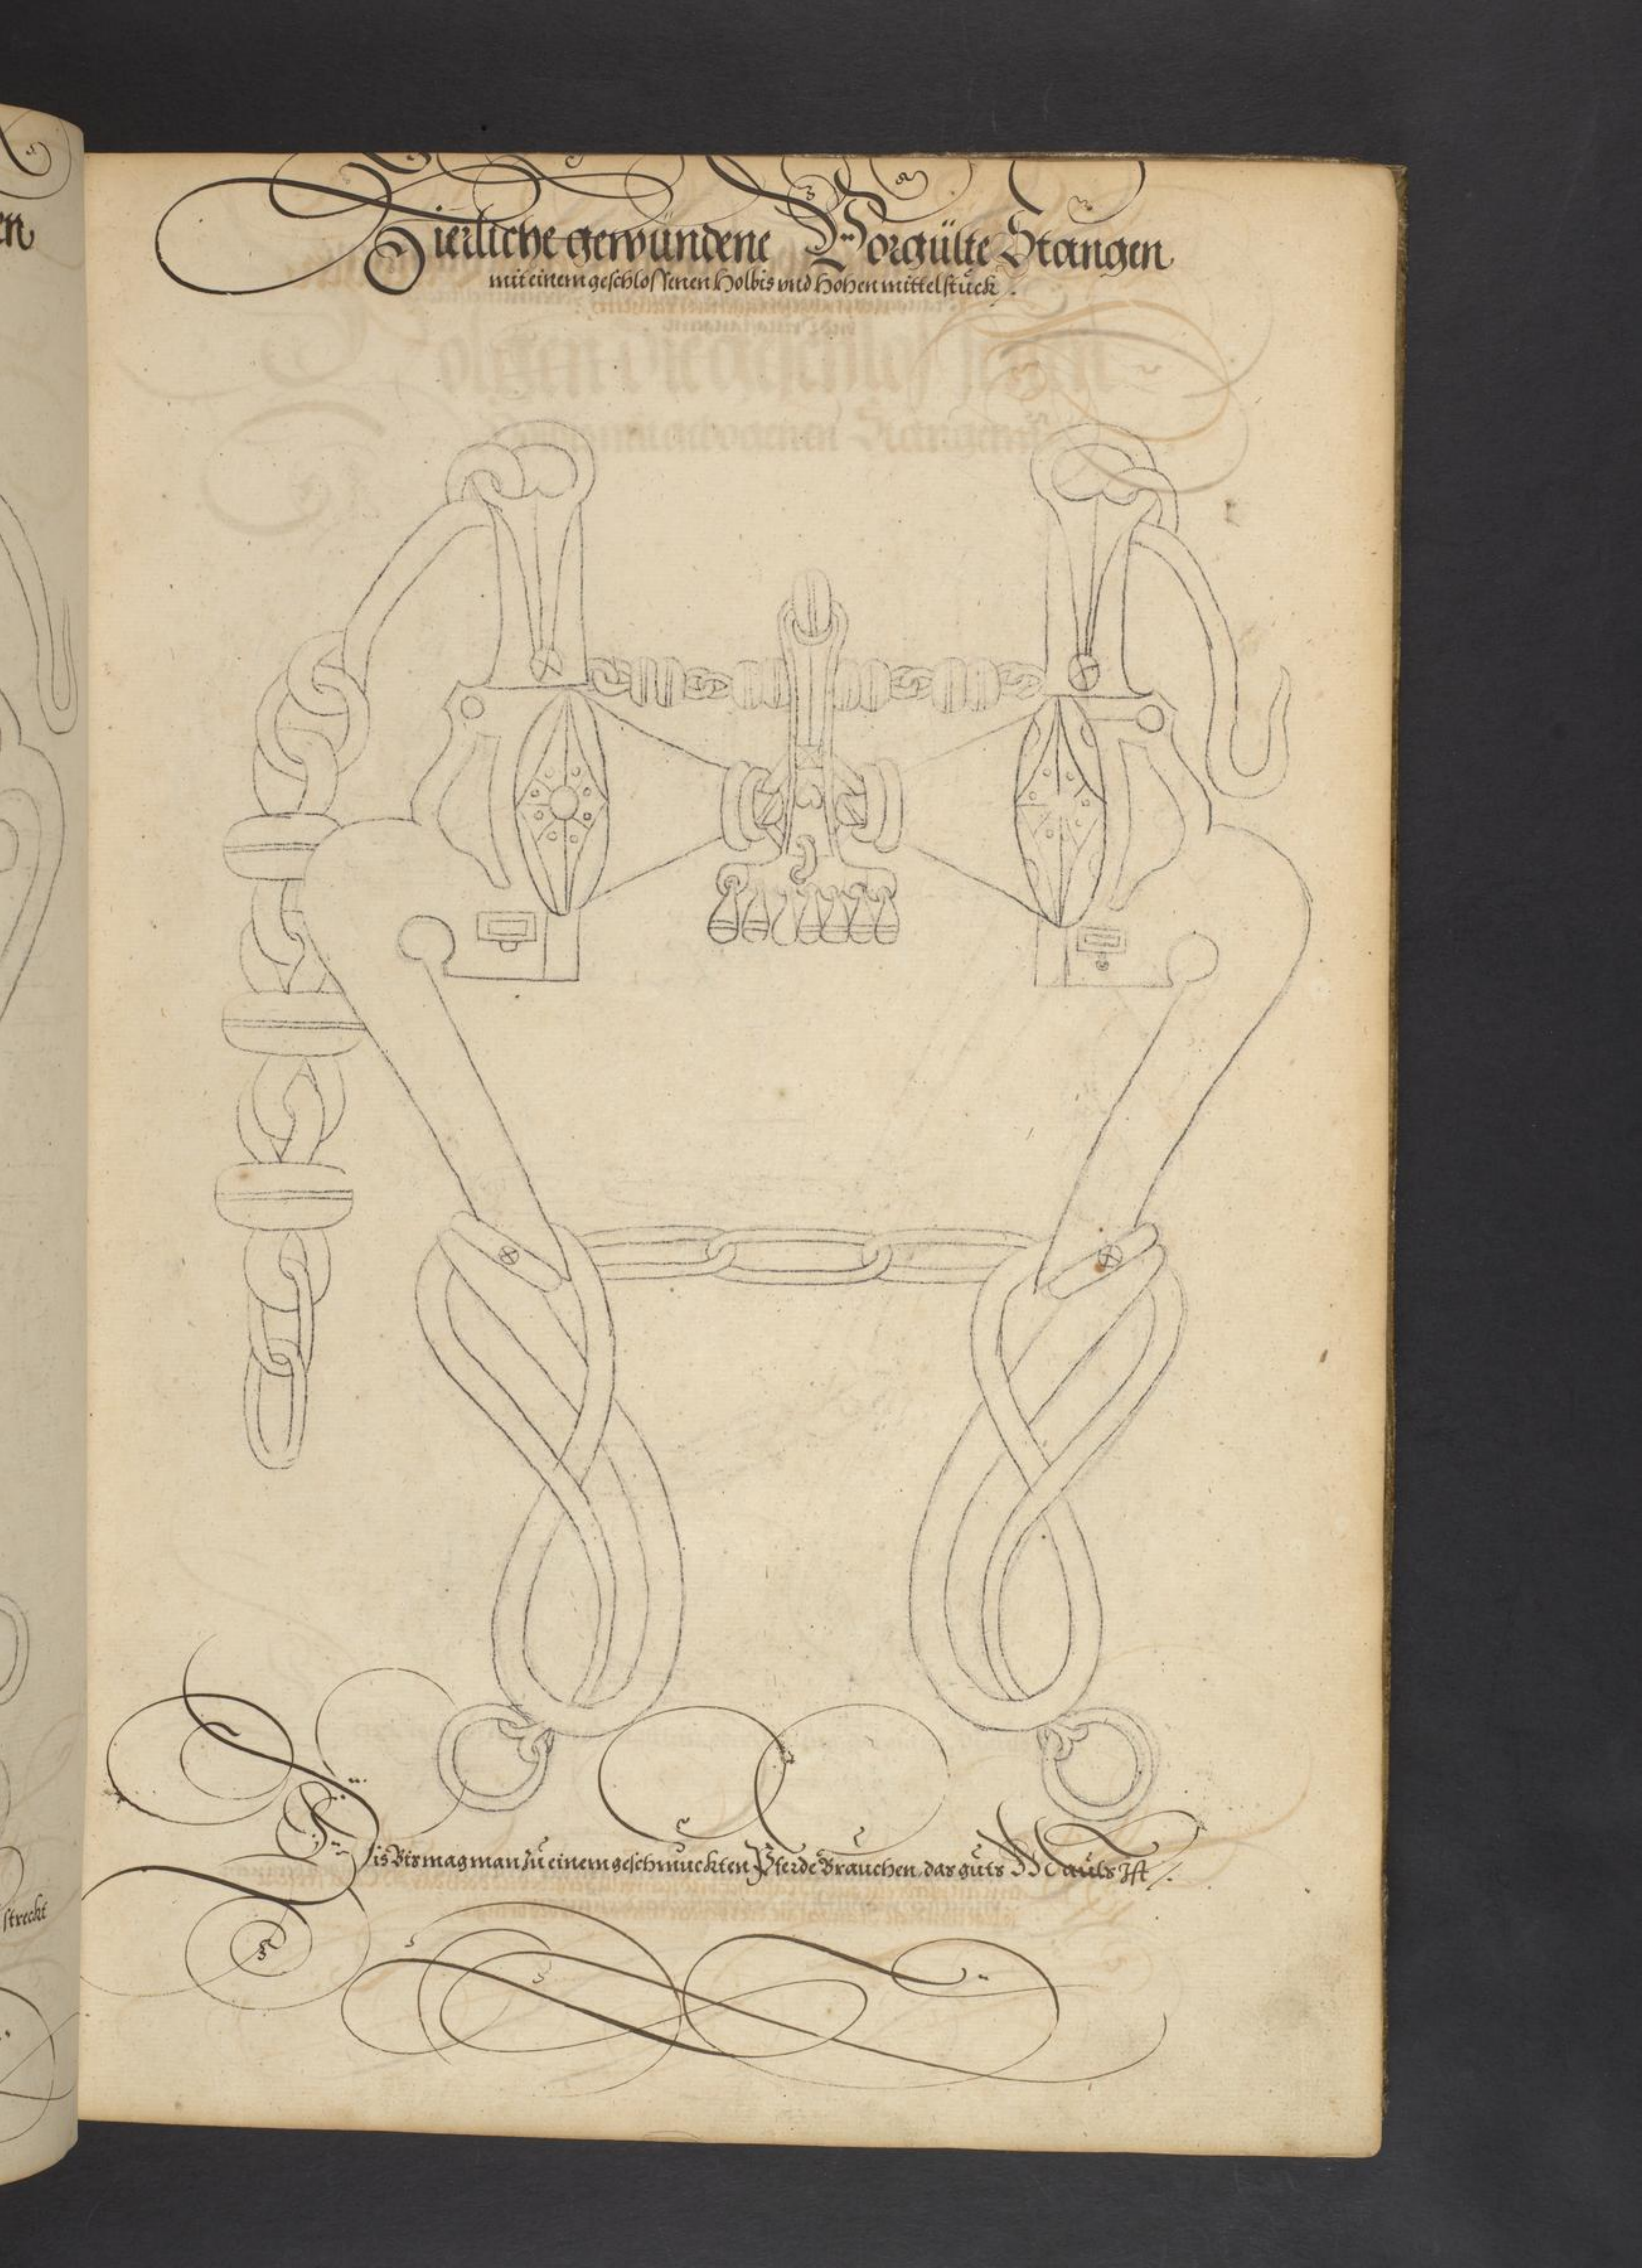 Zierliche gewundene Vorgülte Stangen
mit einem geschlossenen Holbis vnd Hohen mittelstück
Dis Bis mag man zu einem geschmuckten Pferde Brauchen, das guts Mauls Ist
en
streckt